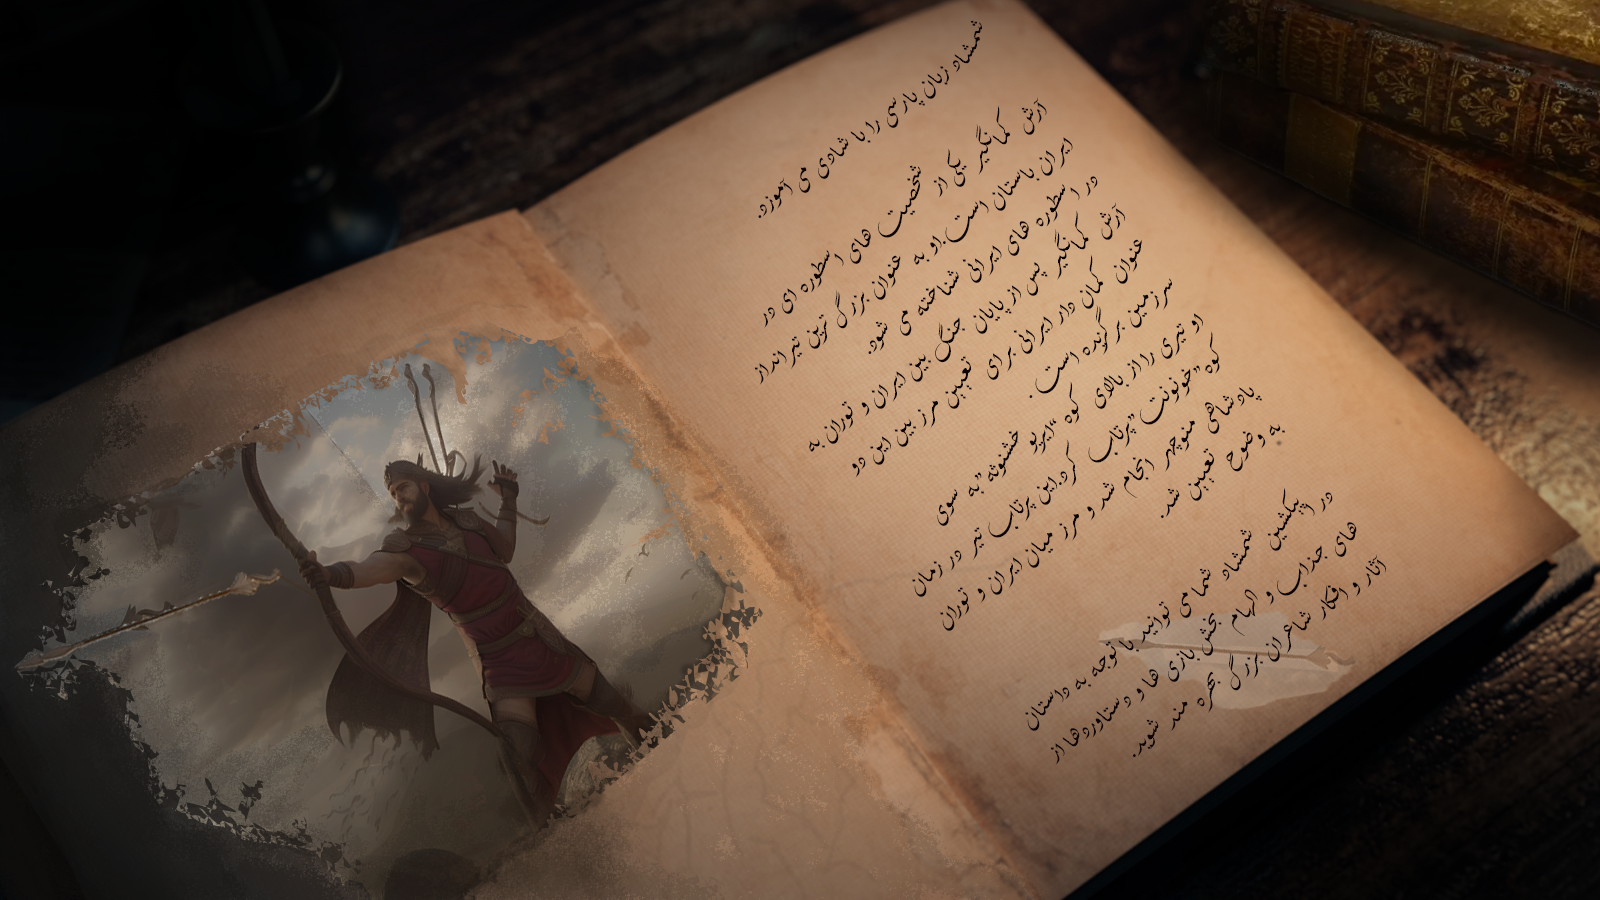 شمشاد زبان پارسی را با شادی می آموزد.
آرش کمانگیر یکی از شخصیت های اسطوره ای در
ایران باستان است.او به عنوان بزرگ ترین تیر انداز
در اسطوره های ایرانی شناخته می شود.
آرش کمانگیر پس از پایان جنگ بین ایران و توران به
عنوان کمان دار ایرانی برای تعیین مرز بین این دو
سرزمین برگزنده است.
او تیری را از بالای کوه "ایریو خشئوثه" به سوی
کوه "خونونت" پرتاب کرد.این پرتاب تیر در زمان
پادشاهی منوچهر انجام شد و مرز میان ایران و توران
به وضوح تعیین شد.
در اپلیکیشن شمشاد شما می توانید با توجه به داستان
های جذاب و الهام بخش بازی ها و دستاوردها از
آثار و افکار شاعران بزرگ بهره مند شوید.